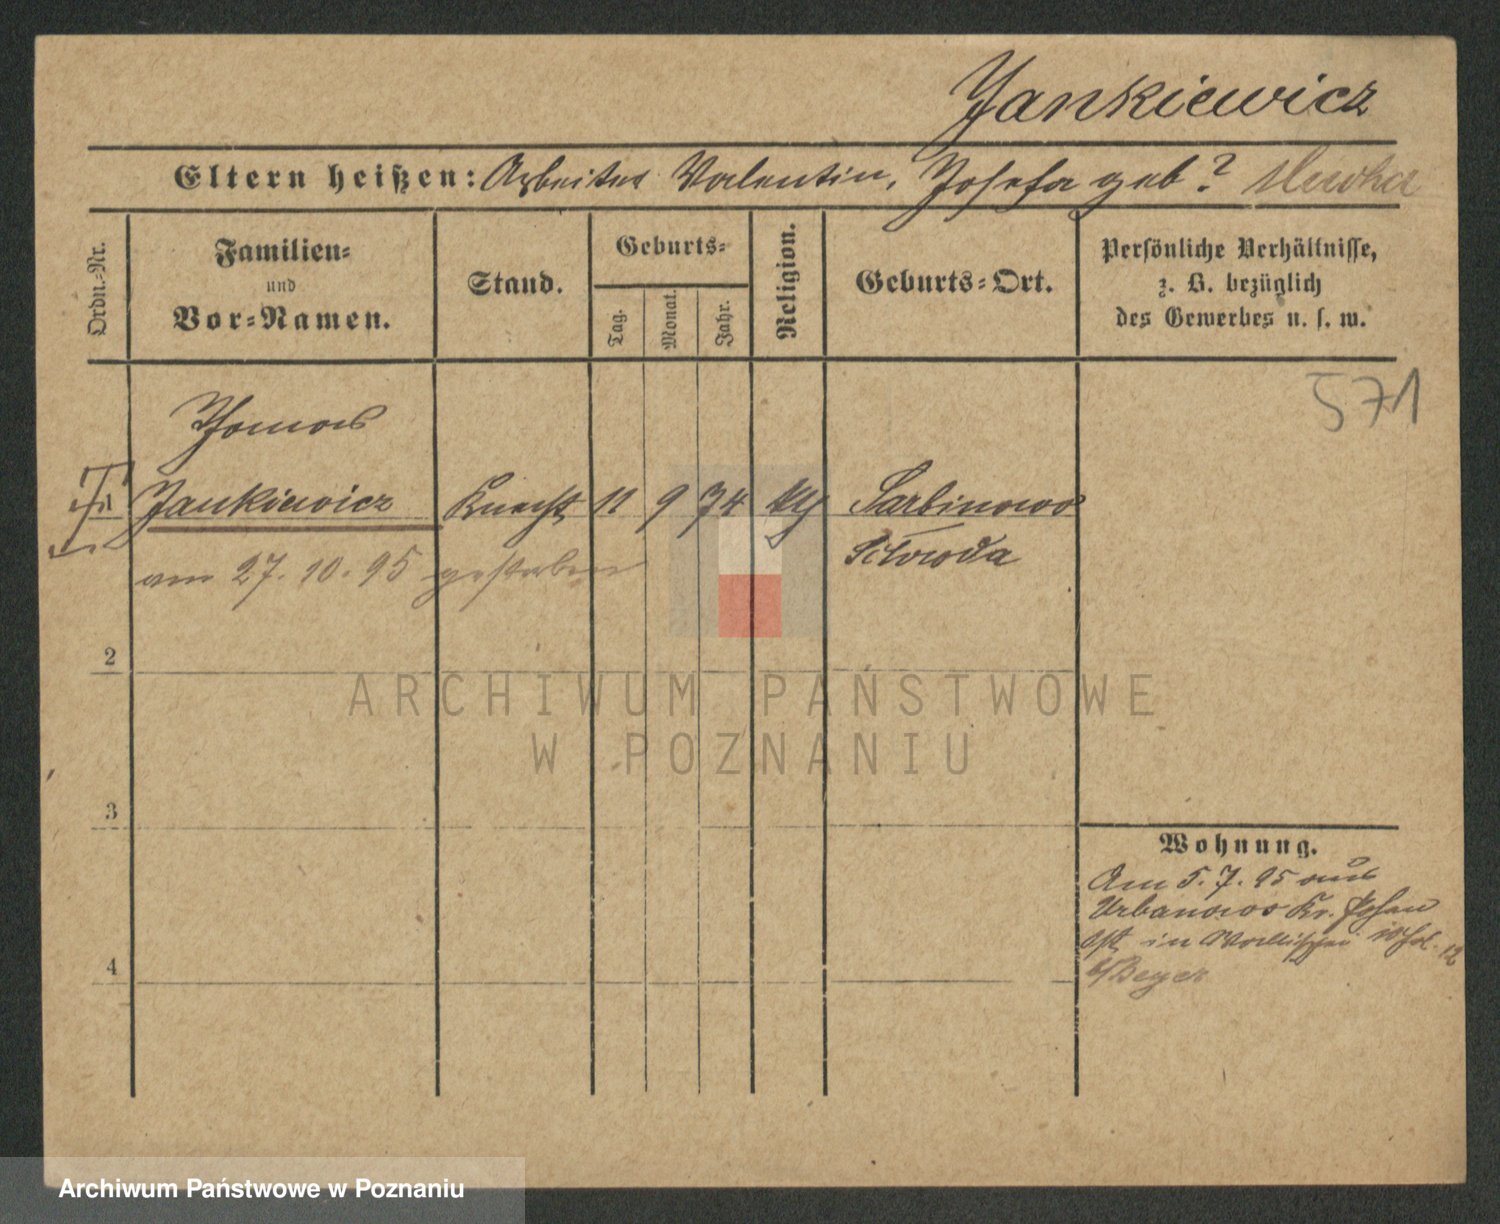 Jankiewicz
Eltern heißen: Arbeiter Valentin, Josefa geb?
Ordn.-Nr.
Familien-
und
Vor-Namen.
Stand.
Geburts-
Tag.
Monat.
Jahr.
Religion.
Geburts-Ort.
Persönliche Verhältnisse,
z. B. bezüglich
des Gewerbes u. s. w.
571
Thomas
1 Jankiewicz Knecht 11 9 74 kth Sarbinowo
Schroda
am 27.10.95 gestorben
2
3
4
Wohnung.
Am 5.7.95 aus
Urbanowo Kr. Posen
in Wallischei 12
b/Beyer
ARCHIWUM PAŃSTWOWE
W POZNANIU
Archiwum Państwowe w Poznaniu